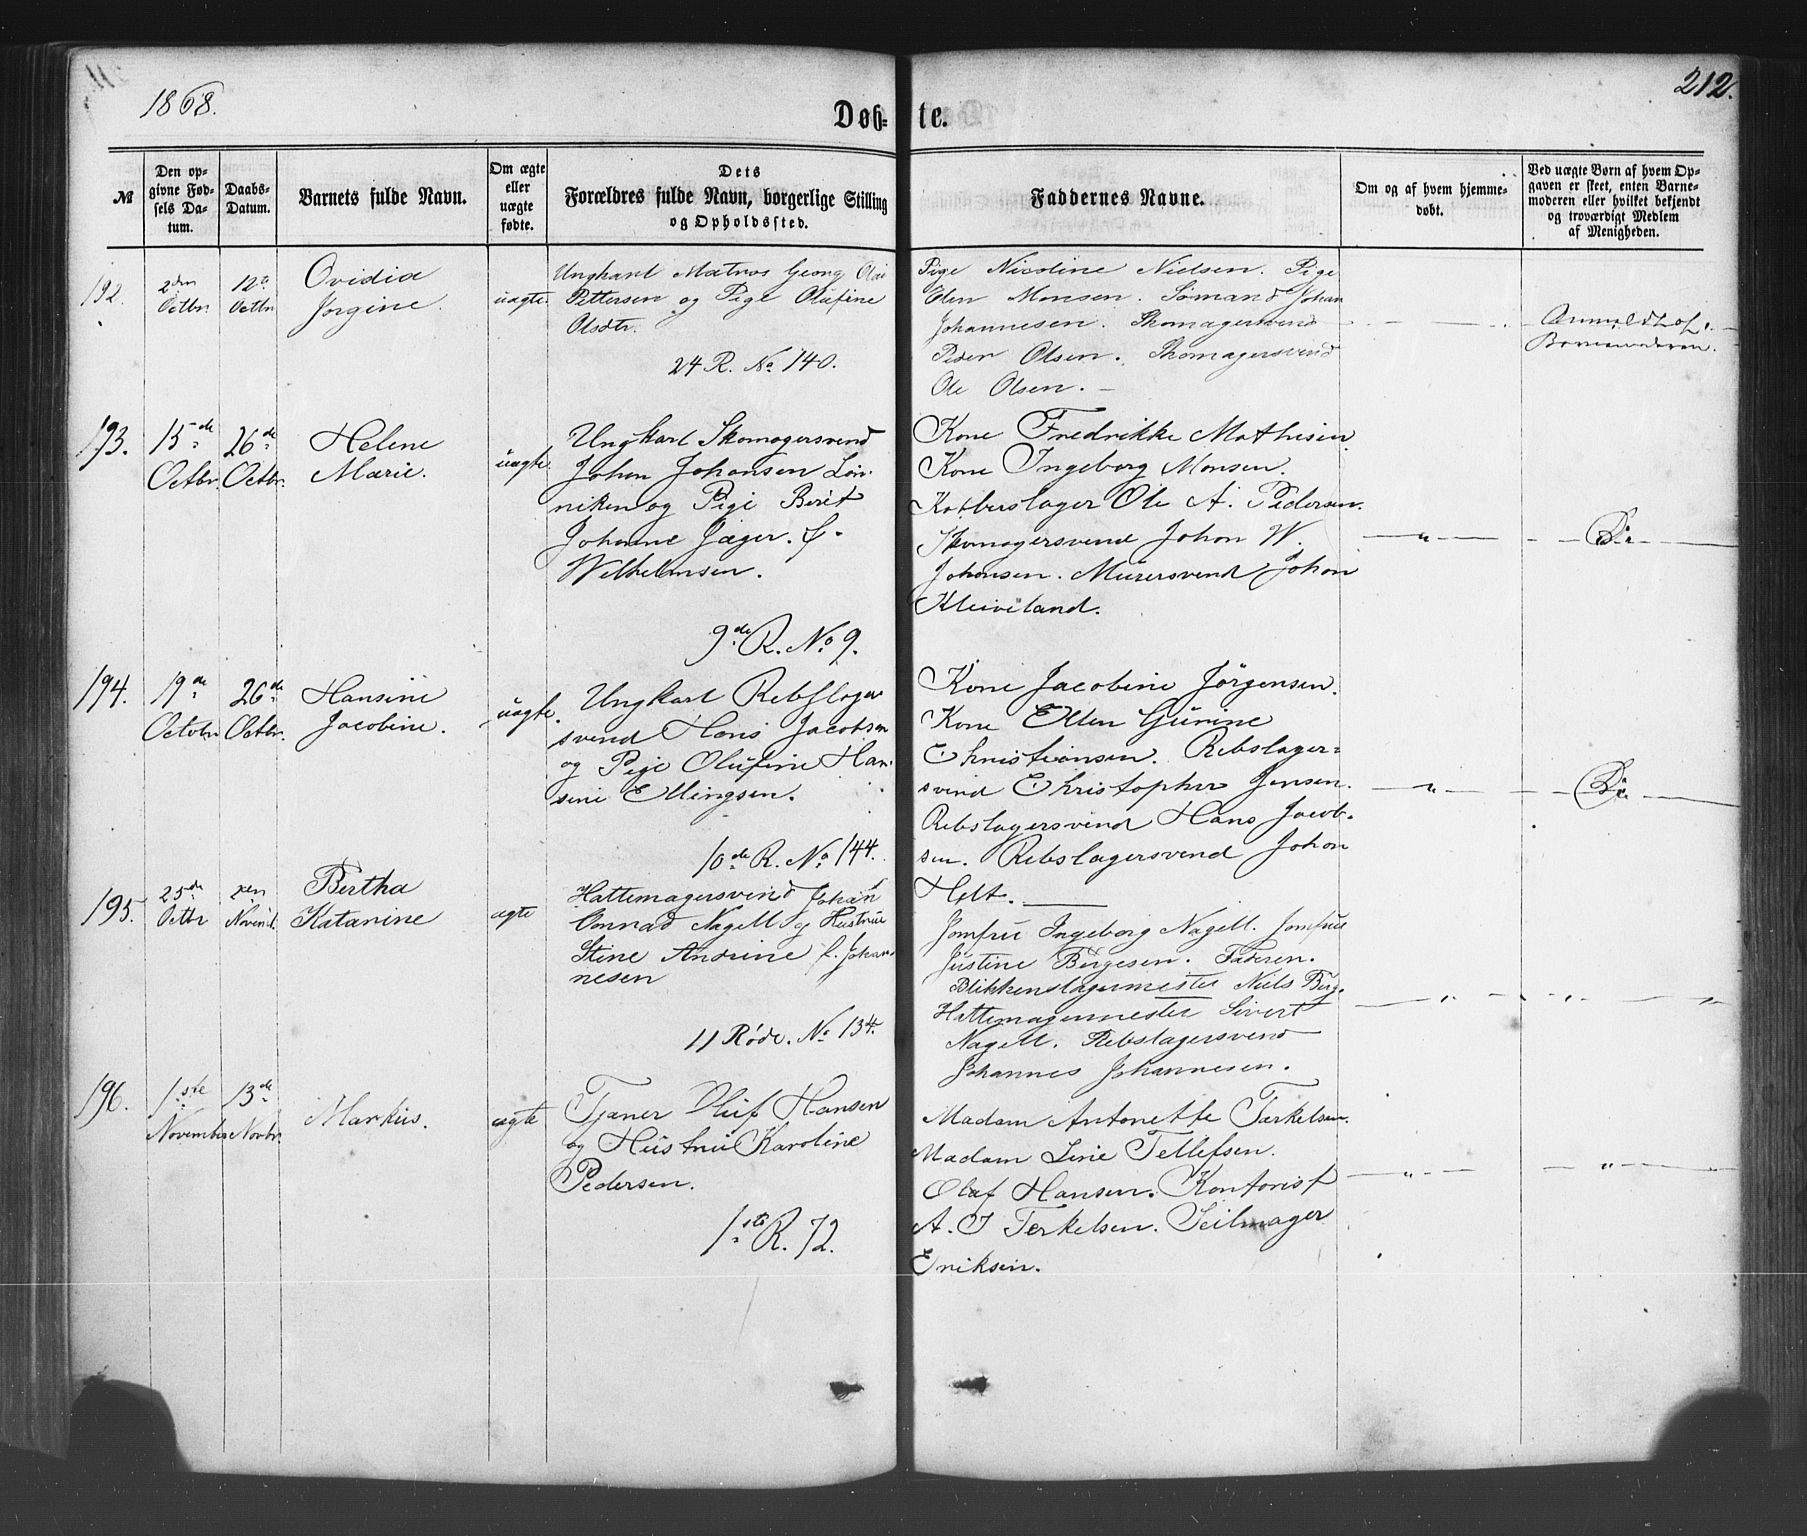 1868.
212.
Døbte.
№
Den opgivne Fødsels Datum.
Daabs-Datum.
Barnets fulde Navn.
Om ægte eller uægte fødte.
Dets Forældres fulde Navn, borgerlige Stilling og Opholdssted.
Faddernes Navne.
Om og af hvem hjemmedøbt.
Ved uægte Børn af hvem Opgaven er skeet, enten Barnemoderen eller hvilket bekjendt og troværdigt Medlem af Menigheden.
192.
2den Octbr.
12te Octbr
Ovidia
Jorgine.
uægte.
Ungkarl Matros Georg Olai
Pettersen og Pige Olufine
Olsdtr.
24 R. No 140.
Pige Nicoline Nielsen. Pige
Elen Monsen. Sømand Johan
Johannesen. Skomagersvend
Peder Olsen. Skomagersvend
Ole Olsen.
Anmeldt af
Barnemoderen.
193.
15de Octbr.
26de Octbr.
Helene
Marie.
uægte.
Ungkarl Skomagersvend
Johan Johansen Løn-
niken og Pige Berit
Johanne Jæger. f.
Wilhelmsen.
9de R. No 9.
Kone Fredrikke Mathisen.
Kone Ingeborg Monsen.
Kobberslager Ole A. Pedersen.
Skomagersvend Johan W.
Johansen. Murersvend Johan
Kleiveland.
"
Do
194.
19de Octobr
26de Octbr.
Hansine
Jacobine.
uægte.
Ungkarl Rebslager
svend Hans Jacobsen
og Pige Olufine Han-
sine Ellingsen.
10de R. No 144.
Kone Jacobine Jörgensen.
Kone Ellen Gurine
Christiansen. Rebslager-
svend Christopher Jensen.
Rebslagersvend Hans Jacob-
sen. Rebslagersvend Johan
Helt.
"
Do
195.
25de Octbr
Novemb.
Bertha
Katanine
ægte
Hattemagersvend Johan
Conrad Nagell og Hustrue
Stine Andrine f. Johan-
nesen
11 Rode. No 134.
Jomfru Ingeborg Nagell. Jomfrue
Justine Børgesen. Faderen.
Blikkenslagermester Niels Berg.
Hattemagermester Sivert
Nagell. Rebslagersvend
Johannes Johannesen.
"
"
"
196.
1ste November
13de Novbr.
Markus.
ægte
Tjener Oluf Hansen
og Hustrue Karoline
Pedersen.
1ste R. 72.
Madam Antonette Terkelsen.
Madam Line Tellefsen.
Olaf Hansen. Kontorist
A. J Terkelsen. Seilmager
Eriksen.
"
"